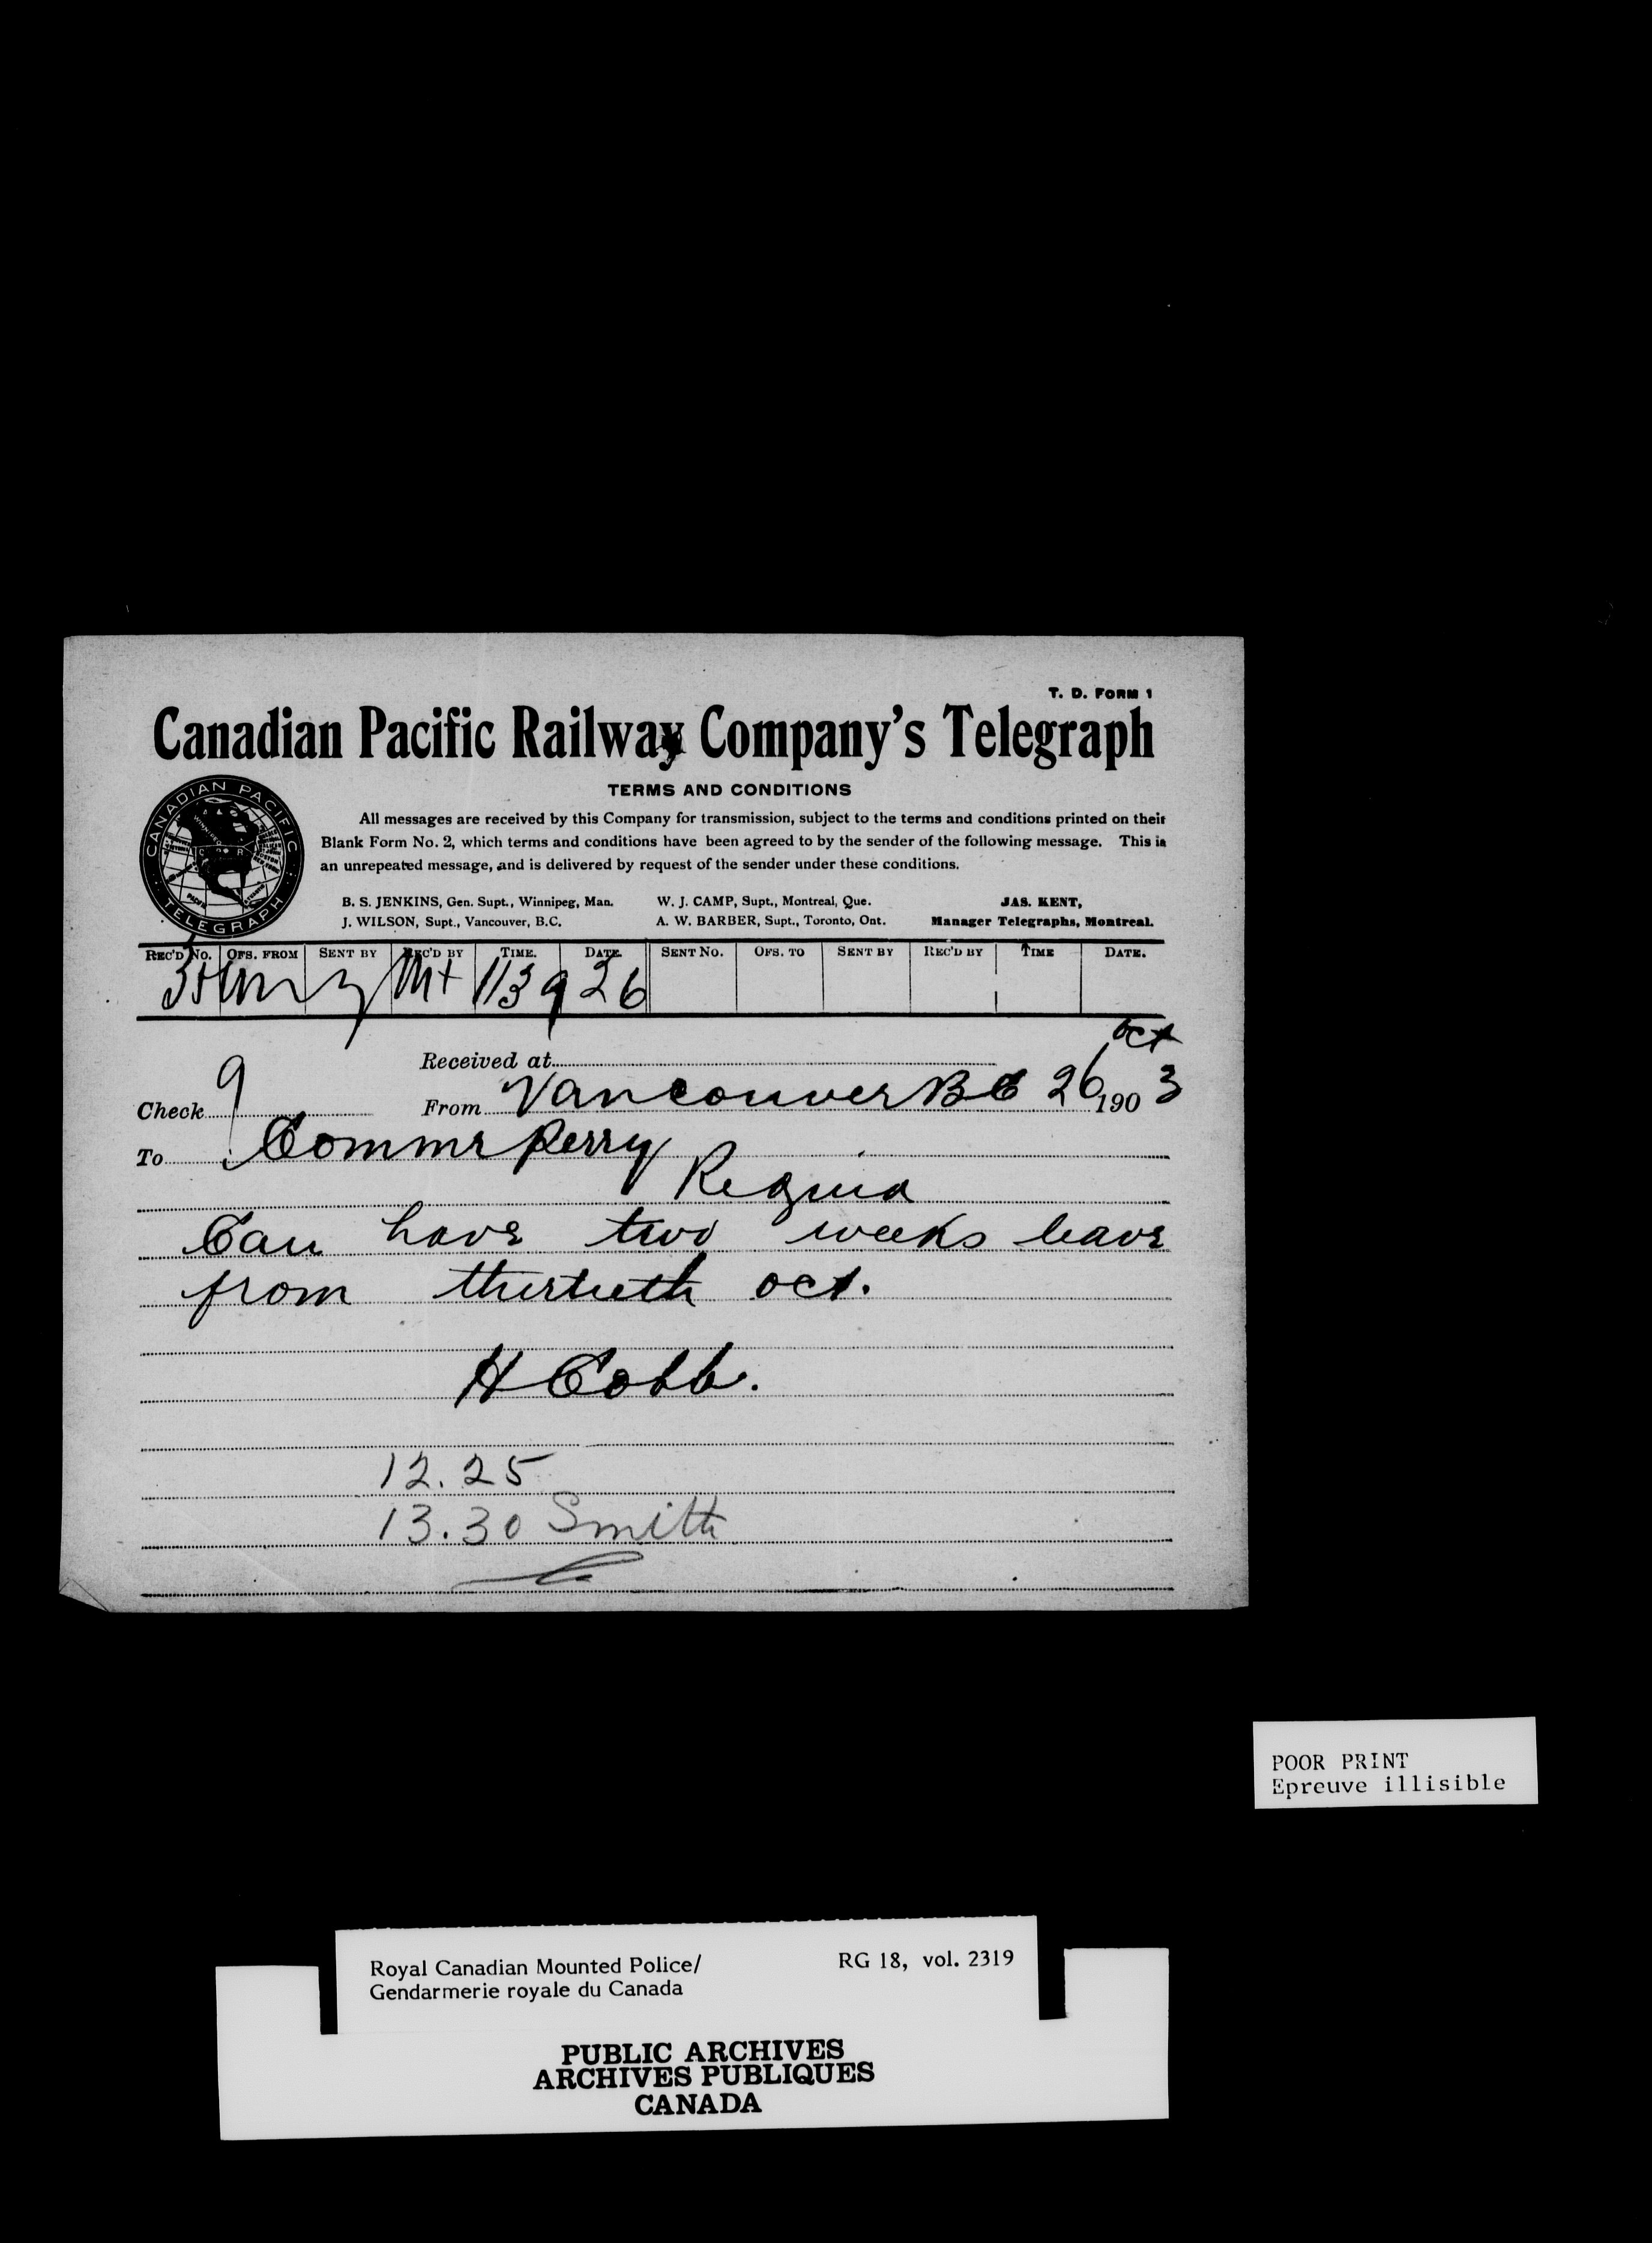 T. D. FORM 1
Canadian Pacific Railway Company's Telegraph
TERMS AND CONDITIONS
All messages are received by this Company for transmission, subject to the terms and conditions printed on their
Blank Form No. 2, which terms and conditions have been agreed to by the sender of the following message. This is
an unrepeated message, and is delivered by request of the sender under these conditions.
CANADIAN PACIFIC
TELEGRAPH
B. S. JENKINS, Gen. Supt., Winnipeg, Man. W. J. CAMP, Supt., Montreal, Que. JAS. KENT,
J. WILSON, Supt., Vancouver, B.C. A. W. BARBER, Supt., Toronto, Ont. Manager Telegraphs, Montreal.
REC'D NO. OFS. FROM SENT BY REC'D BY TIME. DATE. SENT NO. OFS. TO SENT BY REC'D BY TIME DATE.
Mt 1139 26
Oct
Received at
Check 9 From Vancouver BC 26 1903
To Commr Perry
Regina
Can have two weeks leave
from thirtieth oct.
H Cobb.
12.25
13.30 Smith
POOR PRINT
Epreuve illisible
Royal Canadian Mounted Police/ RG 18, vol. 2319
Gendarmerie royale du Canada
PUBLIC ARCHIVES
ARCHIVES PUBLIQUES
CANADA